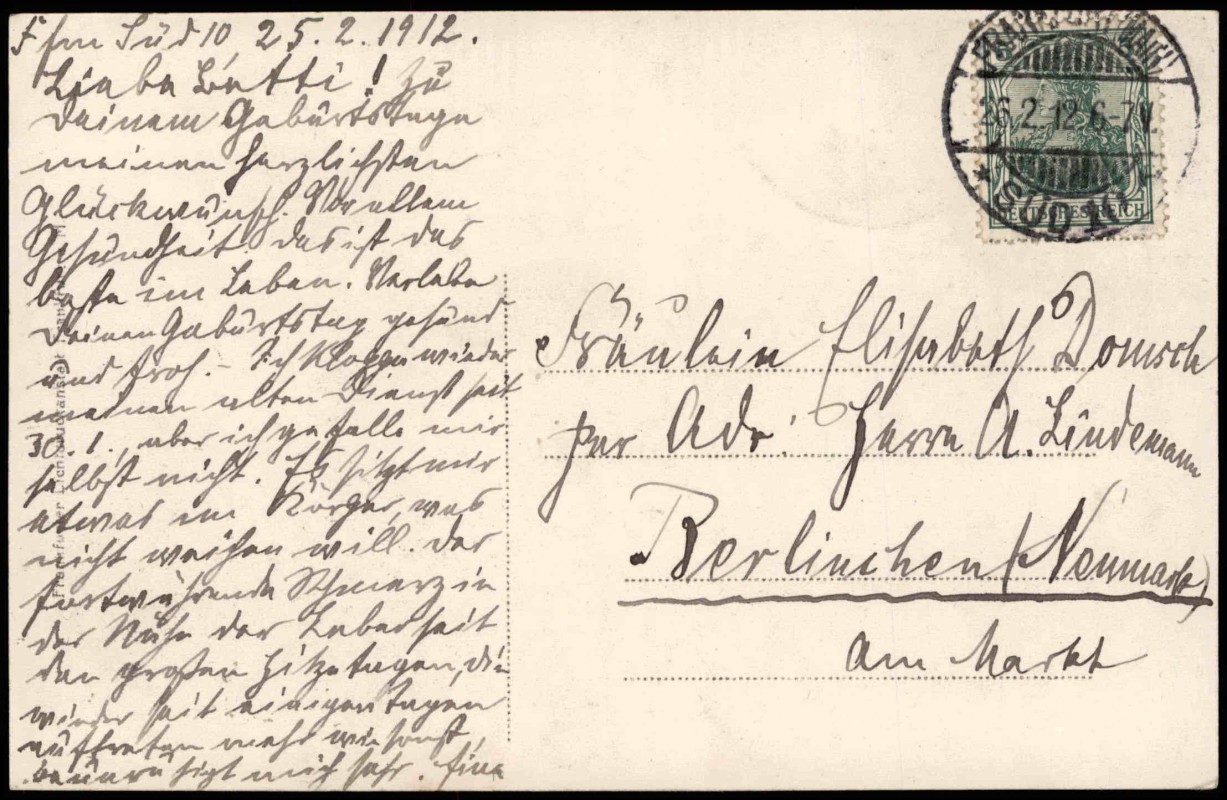 Ffm Süd 10, 25.2.1912.
Liebe Lotti! Zu
Deinem Geburtstage
meinen herzlichsten
Glückwunsch. Vor allem
Gesundheit das ist das
beste im Leben. Verlebe
Deinen Geburtstag gesund
und froh. – Ich kloppe wieder
meinen alten Dienst seit
30.1., aber ich gefalle mir
selbst nicht. Es sitzt mir
etwas im Körper, was
nicht weichen will. Der
fortwährende Schmerz in
der Nähe der Leber seit
den großen Hitzetagen, die
wieder seit einigen Tagen
auftreten mehr wie sonst,
beunruhigt mich sehr. Eine
FRANKFURT (MAIN)
26.2.12.6-7V.
* SÜD 10 *
DEUTSCHES REICH
Fräulein Elisabeth Domsch
per Adr. Herrn A. Lindemann
Berlinchen (Neumark)
am Markt